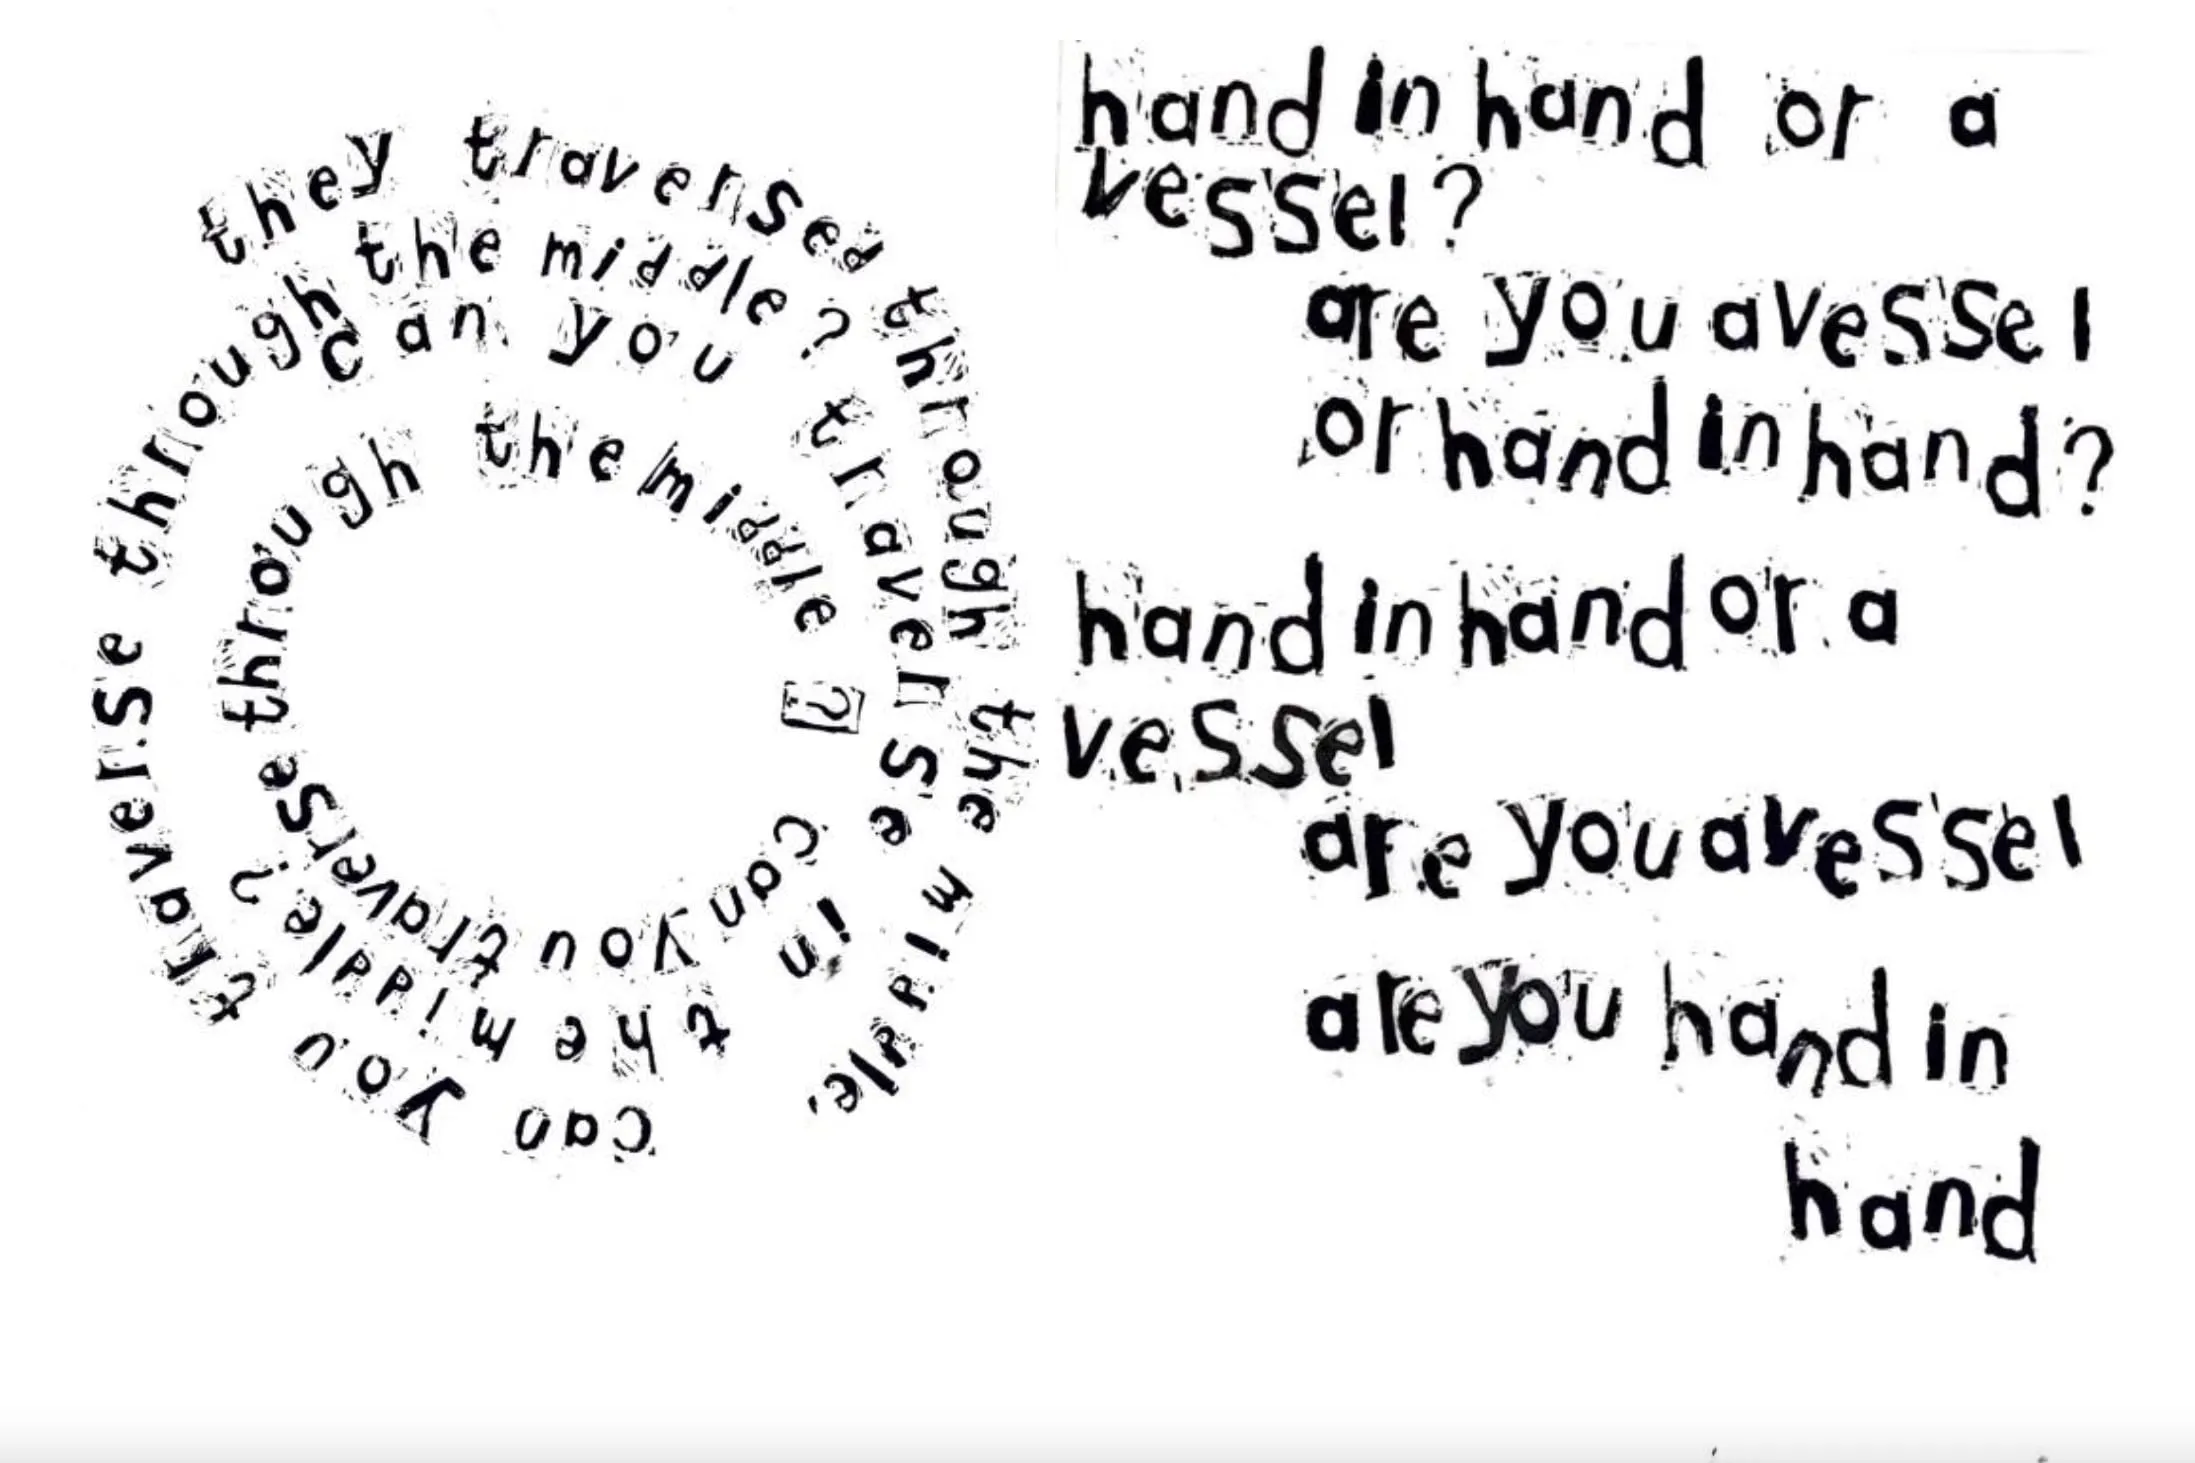 they traversed through the middle,
can you traverse through the middle?
can you traverse in the middle?
can you traverse through the middle?
hand in hand or a
vessel?
are you a vessel
or hand in hand?
hand in hand or a
vessel
are you a vessel
are you hand in
hand